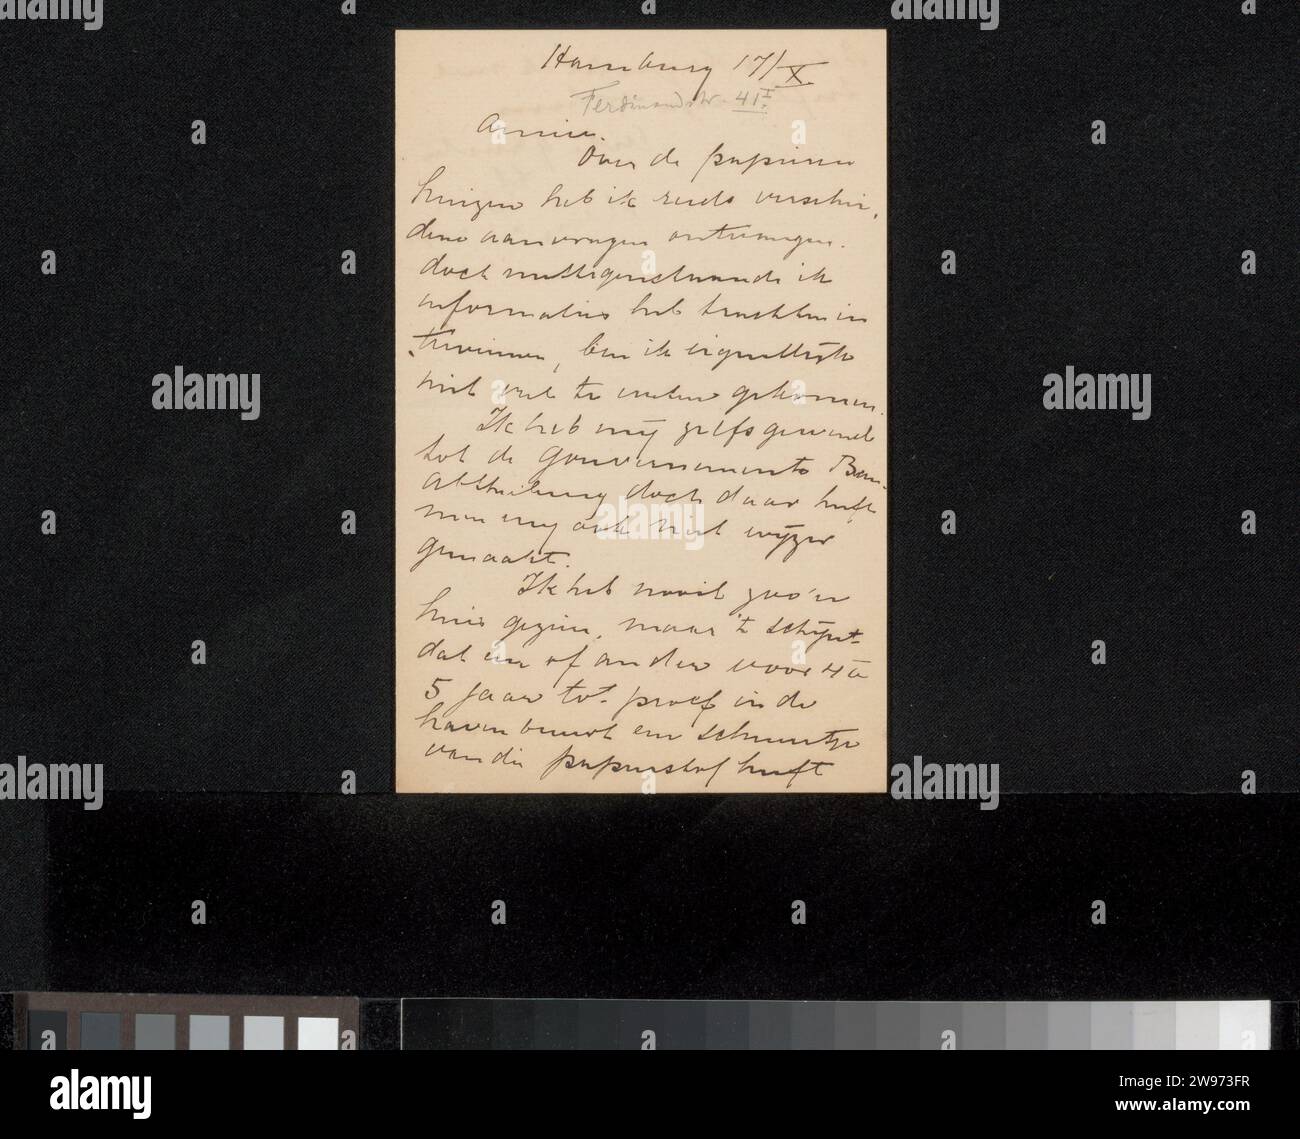 Hamburg 17/X.
Ferdinandstr. 41 I
Amice.
Over de papieren
huizen heb ik reeds verschil,
dene aanvragen ontvangen.
doch niettegenstaande ik
informaties heb trachten in
te winnen, ben ik eigenlijk
niet veel te weten gekomen.
Ik heb mij zelfs gewend
tot de Gouvernements Bau-
abtheilung doch daar heeft
men mij ook niet wijzer
gemaakt.
Ik heb nooit zoo'n
huis gezien, maar 't schijnt
dat een of ander voor 4 à
5 jaar tot proef in de
haven buurt een schuurtje
van die papierstof heeft
alamy
Image ID: 2W973FR
www.alamy.com